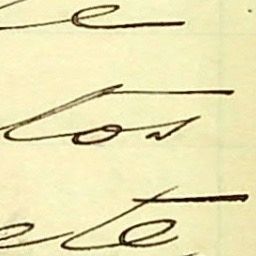 e
tos
ete